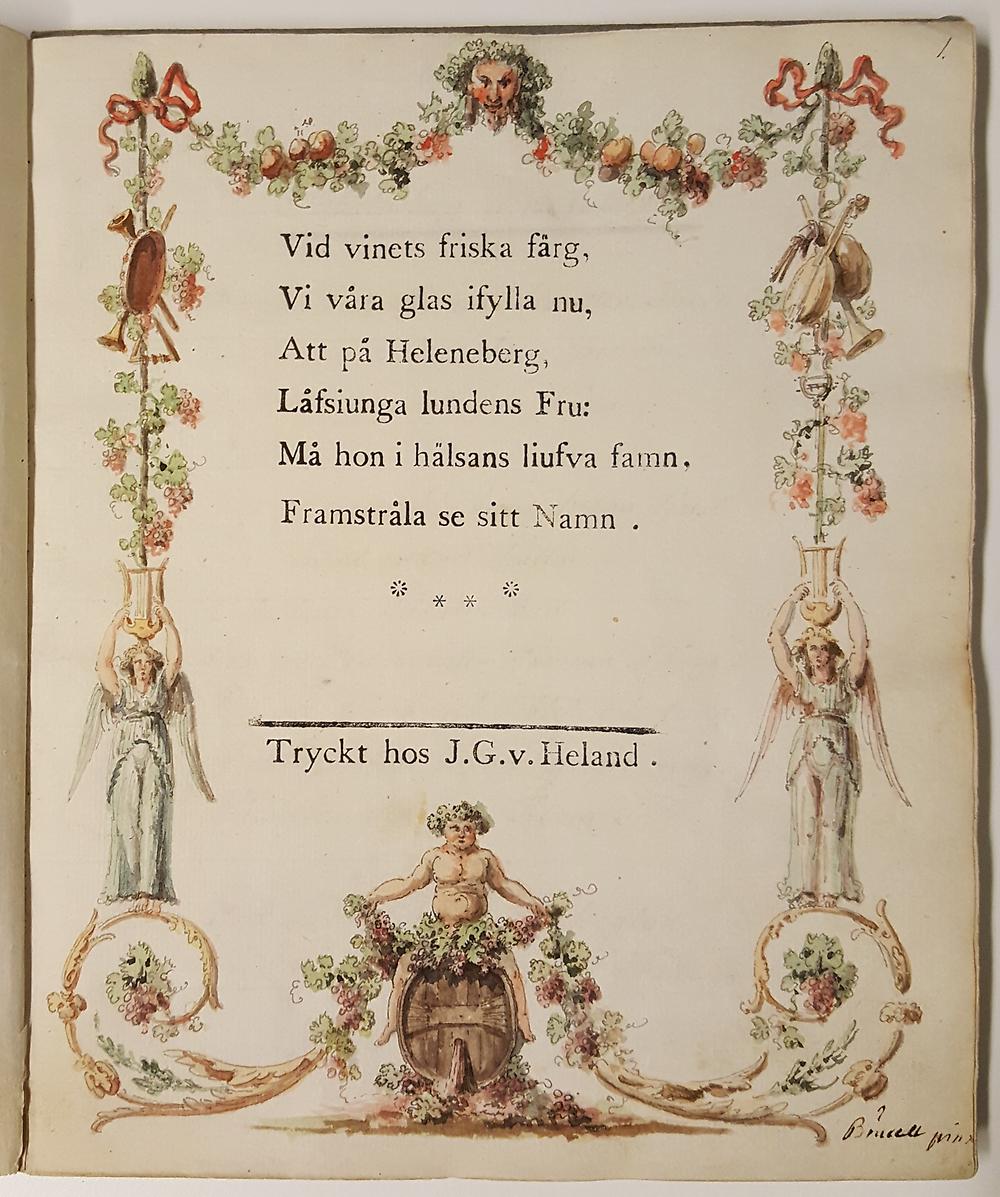 1.
Vid vinets friska färg,
Vi våra glas ifylla nu,
Att på Heleneberg,
Låfsiunga lundens Fru:
Må hon i hälsans liufva famn,
Framstråla se sitt Namn .
* * * *
Tryckt hos J.G.v.Heland .